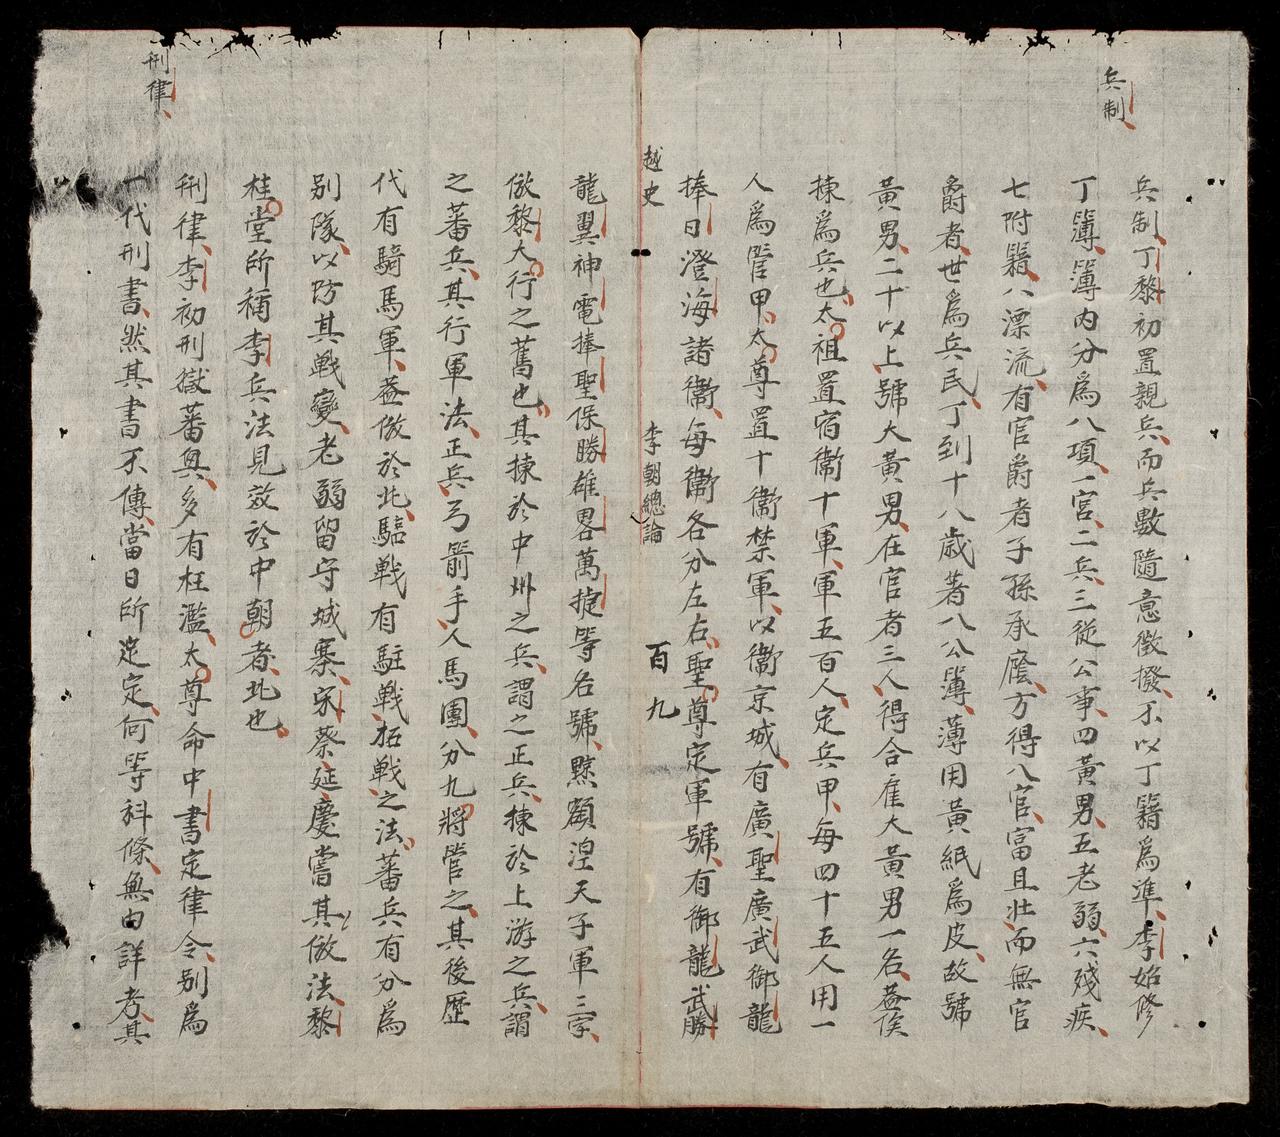 兵制
兵制、丁黎初置親兵、而兵數隨意徵撥、不以丁籍爲準、李始修
丁簿、簿內分爲八項、一宮、二兵、三從公事、四黃男、五老弱、六殘疾、
七附籍、八漂流、有官爵者子孫承廕、方得入官、富且壯、而無官
爵者、世爲兵民、丁到十八歲著入公簿、薄用黃紙爲皮、故號
黃男、二十以上、號大黃男、在官者三人、得合雇大黃男一名、蓋俟
揀爲兵也、太祖置宿衞十軍、軍五百人、定兵甲、每四十五人用一
人爲管甲、太尊置十衞禁軍、以衞京城、有廣聖廣武御龍
捧日澄海諸衞、每衞各分左右、聖尊定軍號、有御龍武勝
越史 李朝總論 百九
龍翼神電捧聖保勝雄畧萬捷等名號、黥額涅天子軍三字、
倣黎大行之舊也、其揀於中州之兵、謂之正兵、揀於上游之兵、謂
之蕃兵、其行軍法、正兵、弓箭手、人馬團、分九將管之、其後歷
代有騎馬軍、蓋倣於此、臨戰有駐戰、拓戰、之法、蕃兵有分爲
別隊、以防其戰變、老弱留守城寨、宋蔡延慶嘗其倣法、黎
桂堂所稱李兵法見效於中朝者、此也、
刑律
刑律、李初刑獄蕃興、多有枉濫、太尊命中書定律令、別爲
一代刑書、然其書不傳、當日所定定、何等科條、無由詳考、其